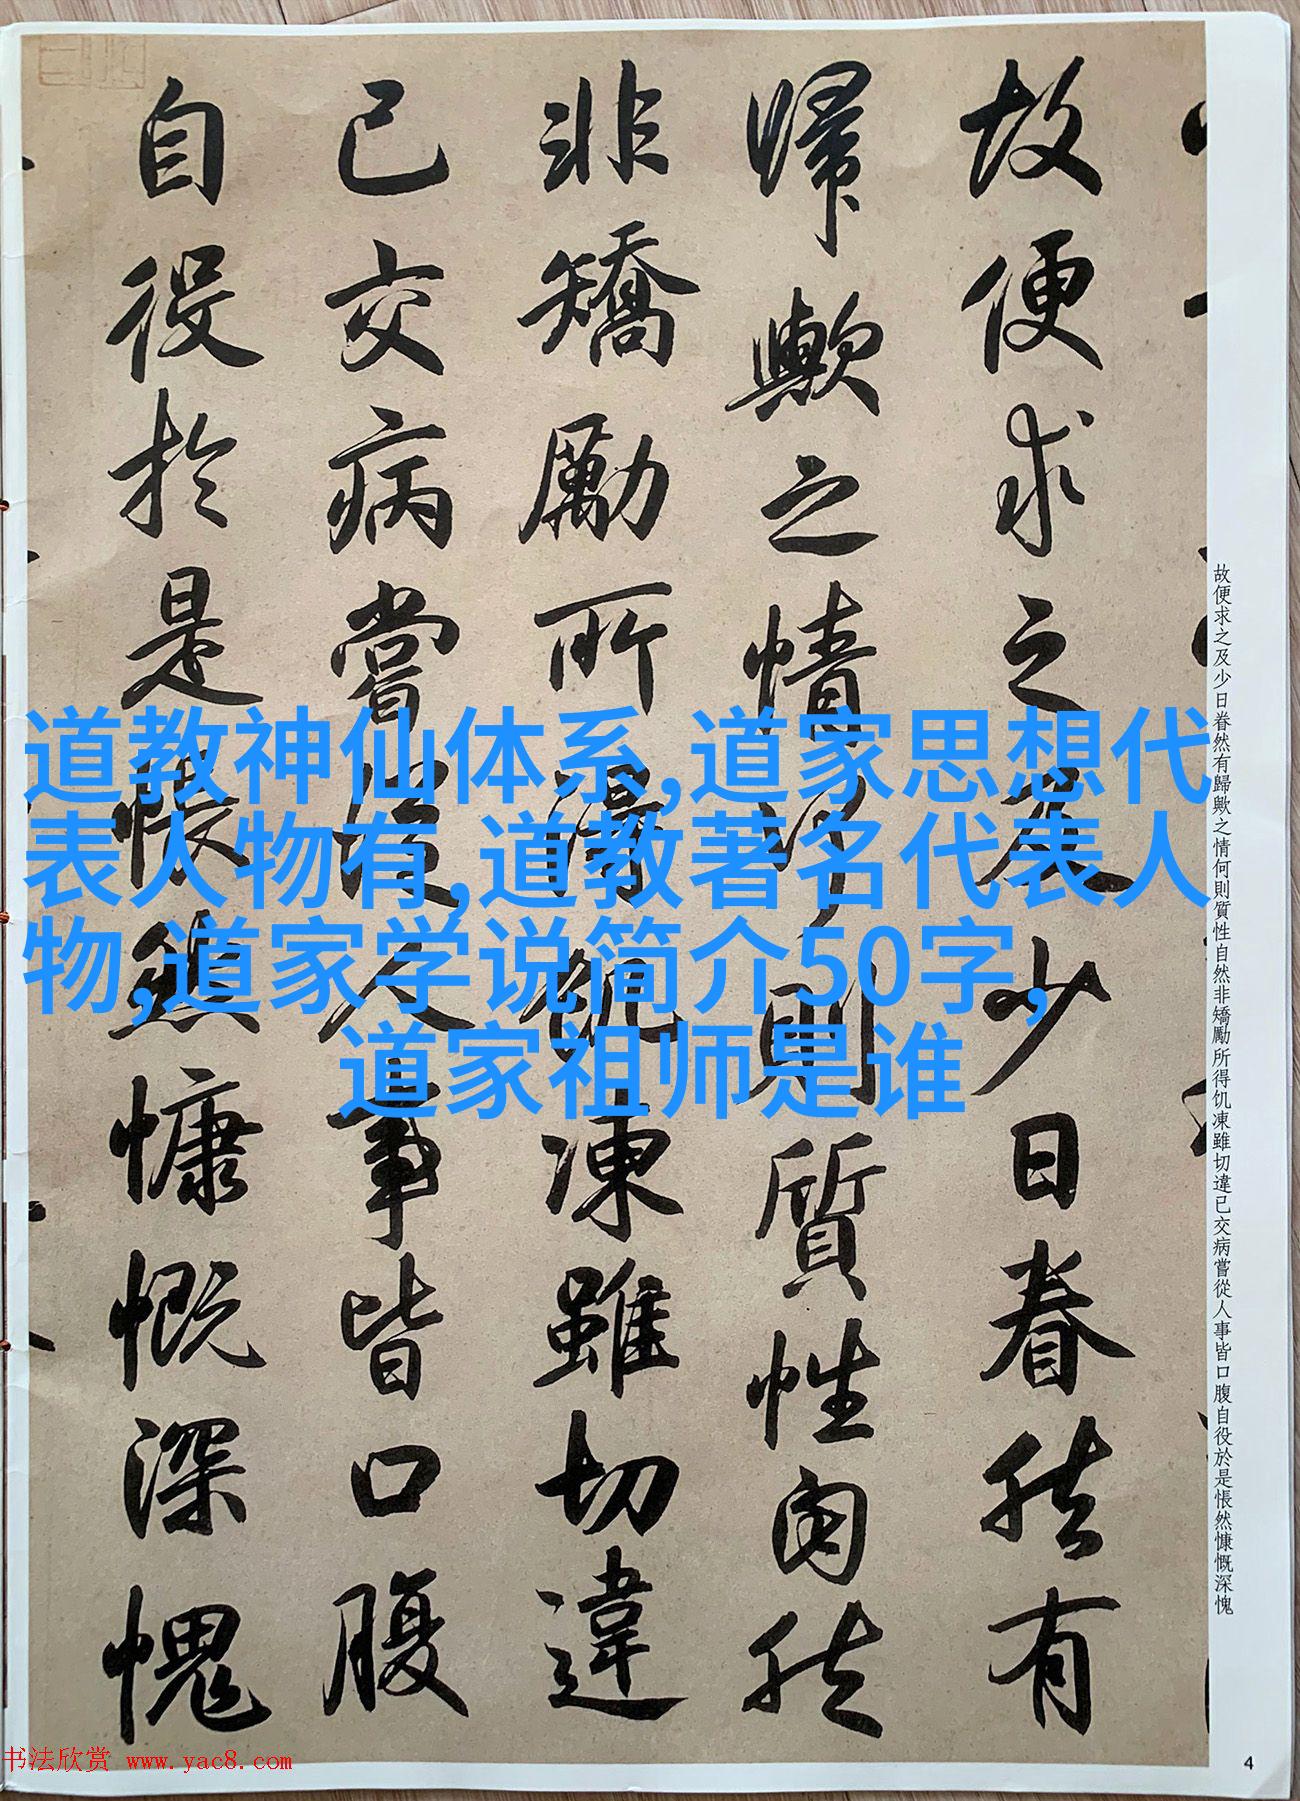 故便求之及少日眷然有
歸歟之情何則質性自然
非矯勵所得飢凍雖切違
已交病嘗從人事皆口腹
自役於是悵然慷慨深愧
故便求之及少日眷然有歸歟之情何則質性自然非矯勵所得饥凍雖切違已交病嘗從人事皆口腹自役於是悵然慷慨深愧
道教神仙体系,道家思想代
表人物有,道教著名代表人
物,道家学说简介50字,
道家祖师是谁
书法欣赏 www.yac8.com
4